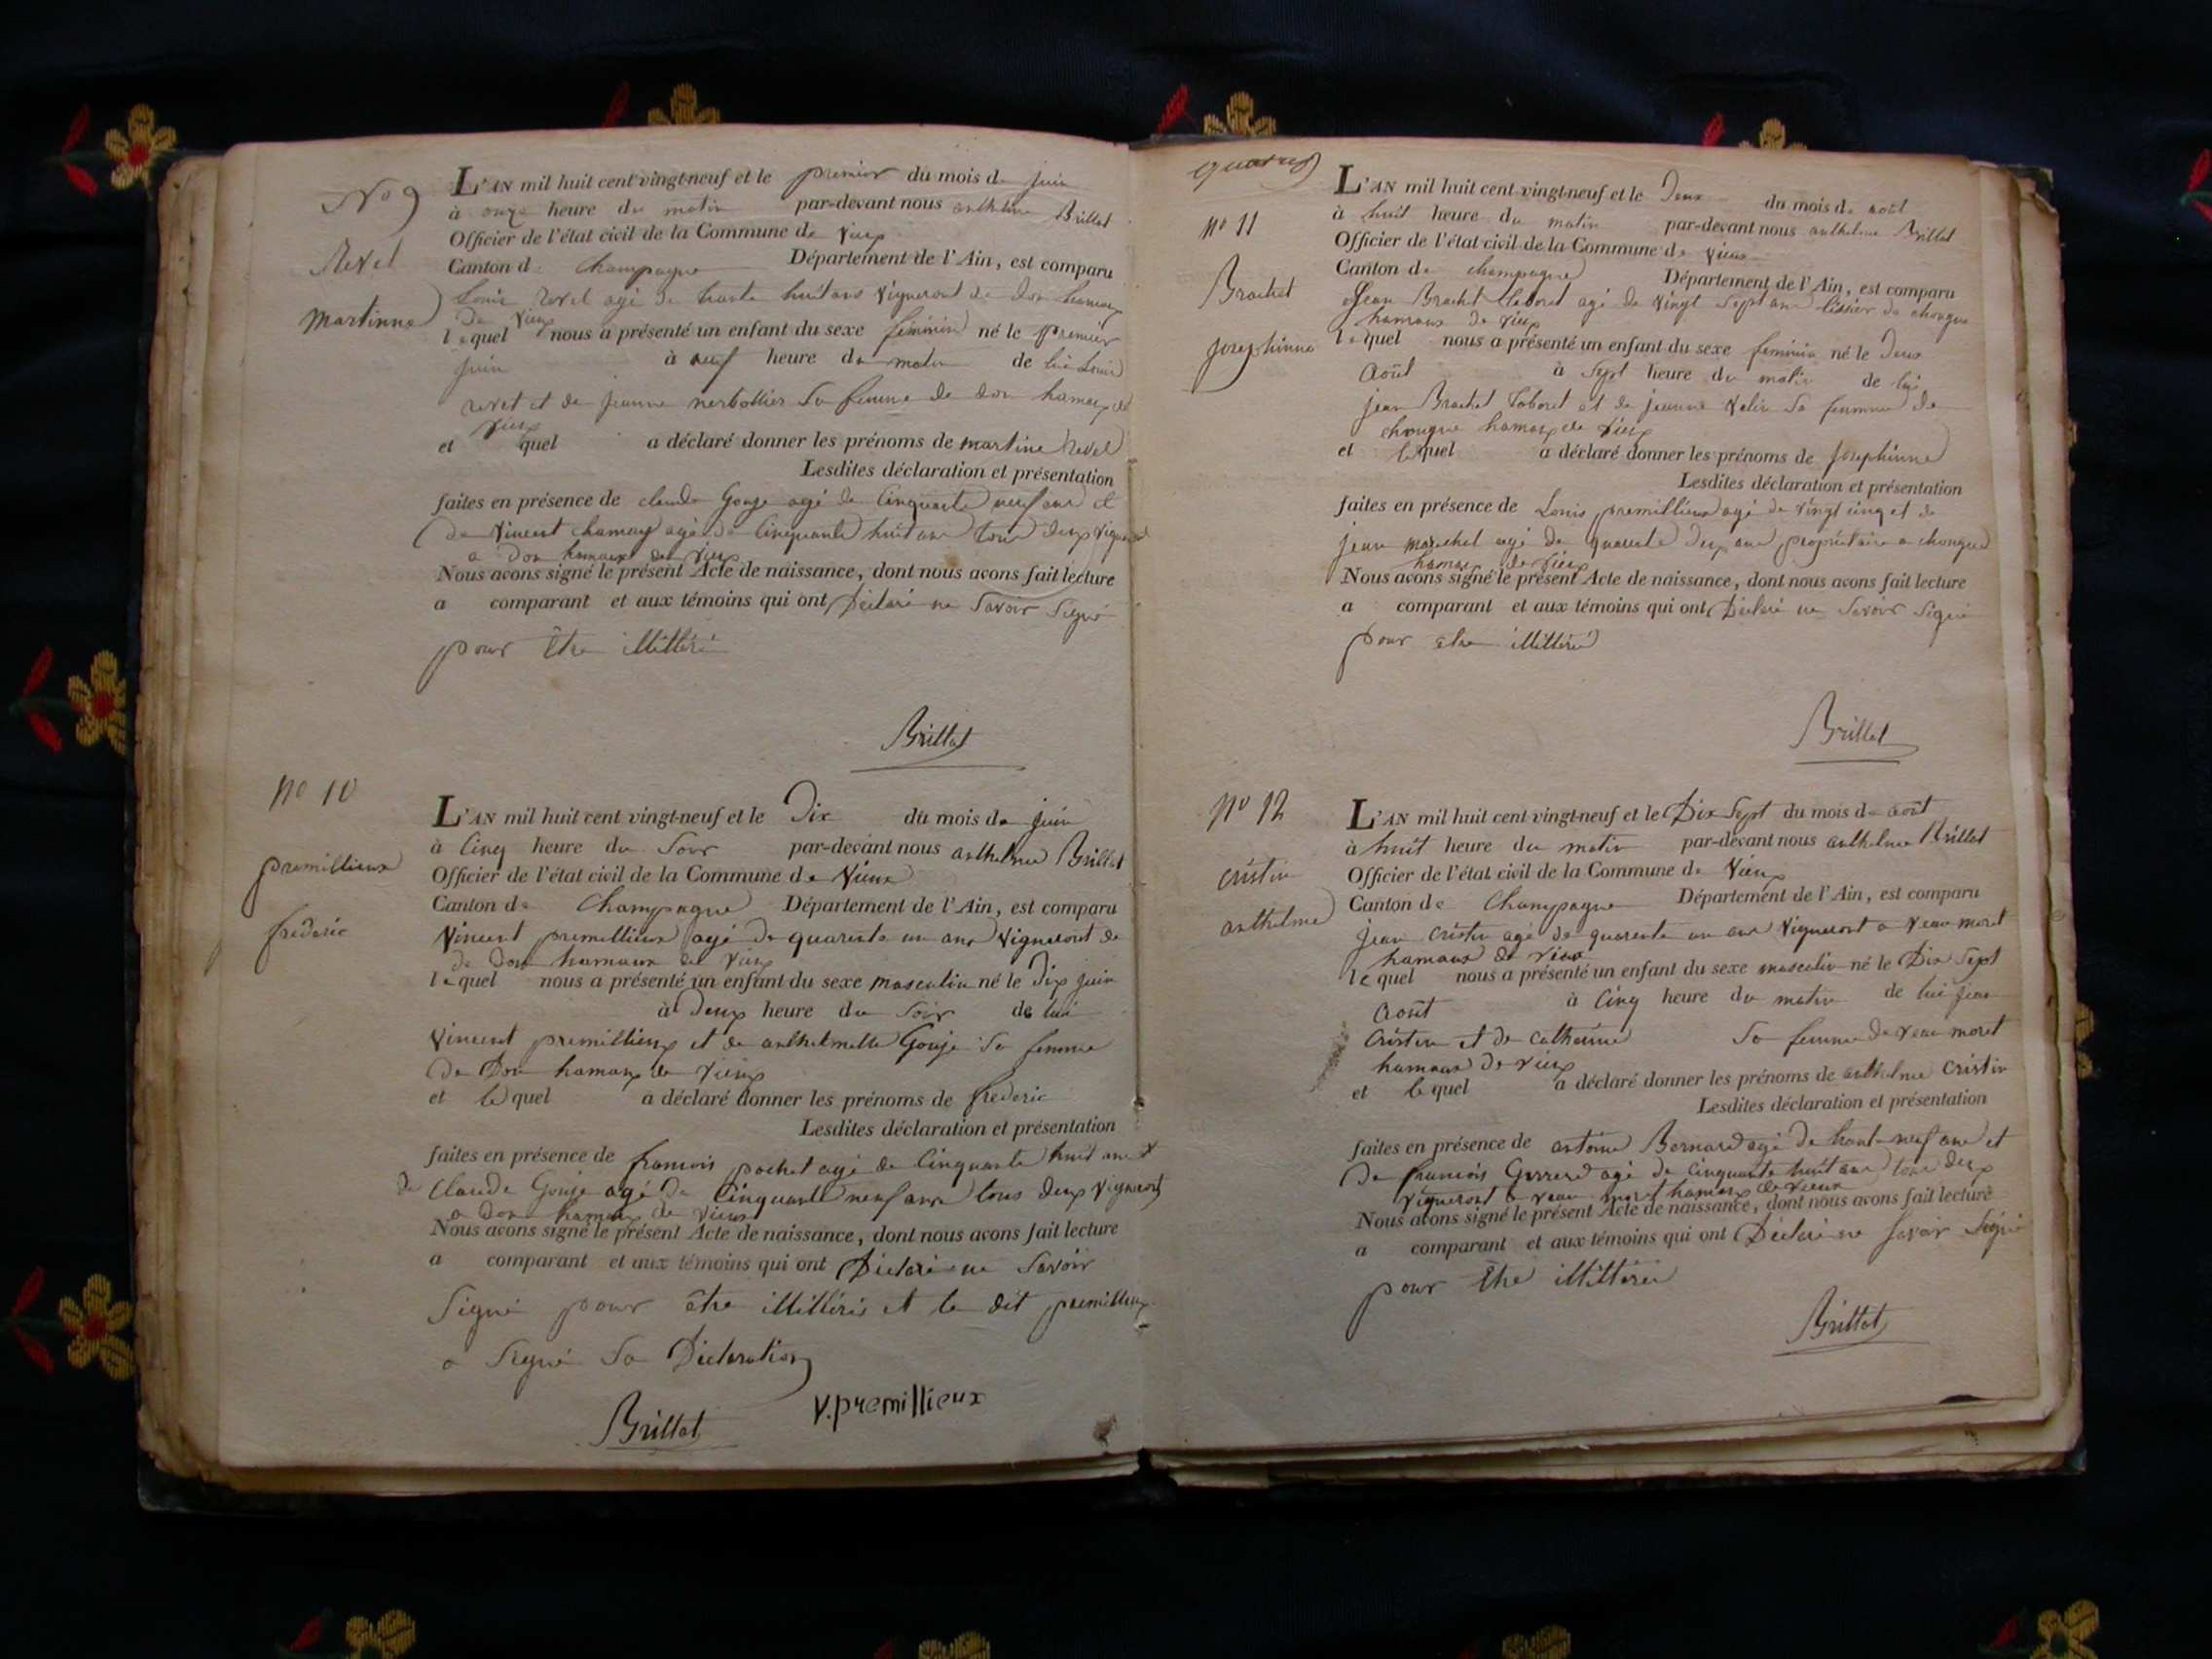 No 9
Revel
Martinne
L'AN mil huit cent vingt-neuf et le premier du mois de juin
à onze heure du matin par-devant nous anthelme Brillat
Officier de l'état civil de la Commune de Vieux
Canton de Champagne Département de l'Ain, est comparu
Louis revel agé de trante huit ans Vigneront de don hamaux
de Vieux
lequel nous a présenté un enfant du sexe féminin né le premier
juin à neuf heure du matin de lui Louis
revel et de jeanne nerbollier Sa femme de don hamaux de
Vieux
et quel a déclaré donner les prénoms de martine revel
Lesdites déclaration et présentation
faites en présence de claude Gouje agé de Cinquante neuf ans et
de Vincent chamay agé de Cinquante huit ans tous deux Vigneront
a don hamaux de Vieux
Nous avons signé le présent Acte de naissance, dont nous avons fait lecture
a comparant et aux témoins qui ont Déclaré ne Savoir Signé
pour être illittéré
Brillat
No 10
premillieux
frederic
L'AN mil huit cent vingt-neuf et le Dix du mois de juin
à Cinq heure du Soir par-devant nous anthelme Brillat
Officier de l'état civil de la Commune de Vieux
Canton de Champagne Département de l'Ain, est comparu
Vincent premillieux agé de quarente un ans Vigneront de
de Don hamaux de Vieux
lequel nous a présenté un enfant du sexe masculin né le Dix juin
à Deux heure du Soir de lui
Vincent premillieux et de anthelmette Gouje Sa femme
de Don hamaux de Vieux
et lequel a déclaré donner les prénoms de frederic
Lesdites déclaration et présentation
faites en présence de francois pochet agé de Cinquante huit ans et
de Claude Gouje agé de Cinquante neuf ans tous deux Vigneront
a don hamaux de Vieux
Nous avons signé le présent Acte de naissance, dont nous avons fait lecture
a comparant et aux témoins qui ont Déclaré ne Savoir
Signé pour être illittéré et le dit premillieux
a Signé Sa Déclaration
Brillat V.premillieux
No 11
Brachet
josephinne
L'AN mil huit cent vingt-neuf et le Deux du mois de août
à huit heure du matin par-devant nous anthelme Brillat
Officier de l'état civil de la Commune de Vieux
Canton de champagne Département de l'Ain, est comparu
Jean Brachet agé de Vingt Sept ans de chongne
hamaux de Vieux
lequel nous a présenté un enfant du sexe feminin né le Deux
Août à Sept heure du matin de lui
jean Brachet et de jeanne Sa femme de
chongne hamaux de Vieux
et lequel a déclaré donner les prénoms de josephinne
Lesdites déclaration et présentation
faites en présence de Louis premillieux agé de Vingt cinq et de
jean marchel agé de quarente deux ans propriétaire a chongne
hamaux de Vieux
Nous avons signé le présent Acte de naissance, dont nous avons fait lecture
a comparant et aux témoins qui ont Déclaré ne Savoir Signé
pour etre illittéré
Brillat
No 12
cristin
anthelme
L'AN mil huit cent vingt-neuf et le Dix Sept du mois de août
à huit heure du matin par-devant nous anthelme Brillat
Officier de l'état civil de la Commune de Vieux
Canton de Champagne Département de l'Ain, est comparu
jean cristin agé de quarente un ans Vigneront a Veau moret
hamaux de Vieux
lequel nous a présenté un enfant du sexe masculin né le Dix Sept
Août à Cinq heure du matin de lui jean
Cristin et de catherine Sa femme de Veau moret
hamaux de Vieux
et lequel a déclaré donner les prénoms de anthelme Cristin
Lesdites déclaration et présentation
faites en présence de antoine Bernard agé de trante neuf ans et
De francois agé de Cinquante huit ans tous deux
Vigneront a Veau moret hamaux de Vieux
Nous avons signé le présent Acte de naissance, dont nous avons fait lecture
a comparant et aux témoins qui ont Déclaré ne Savoir Signé
pour être illittéré
Brillat